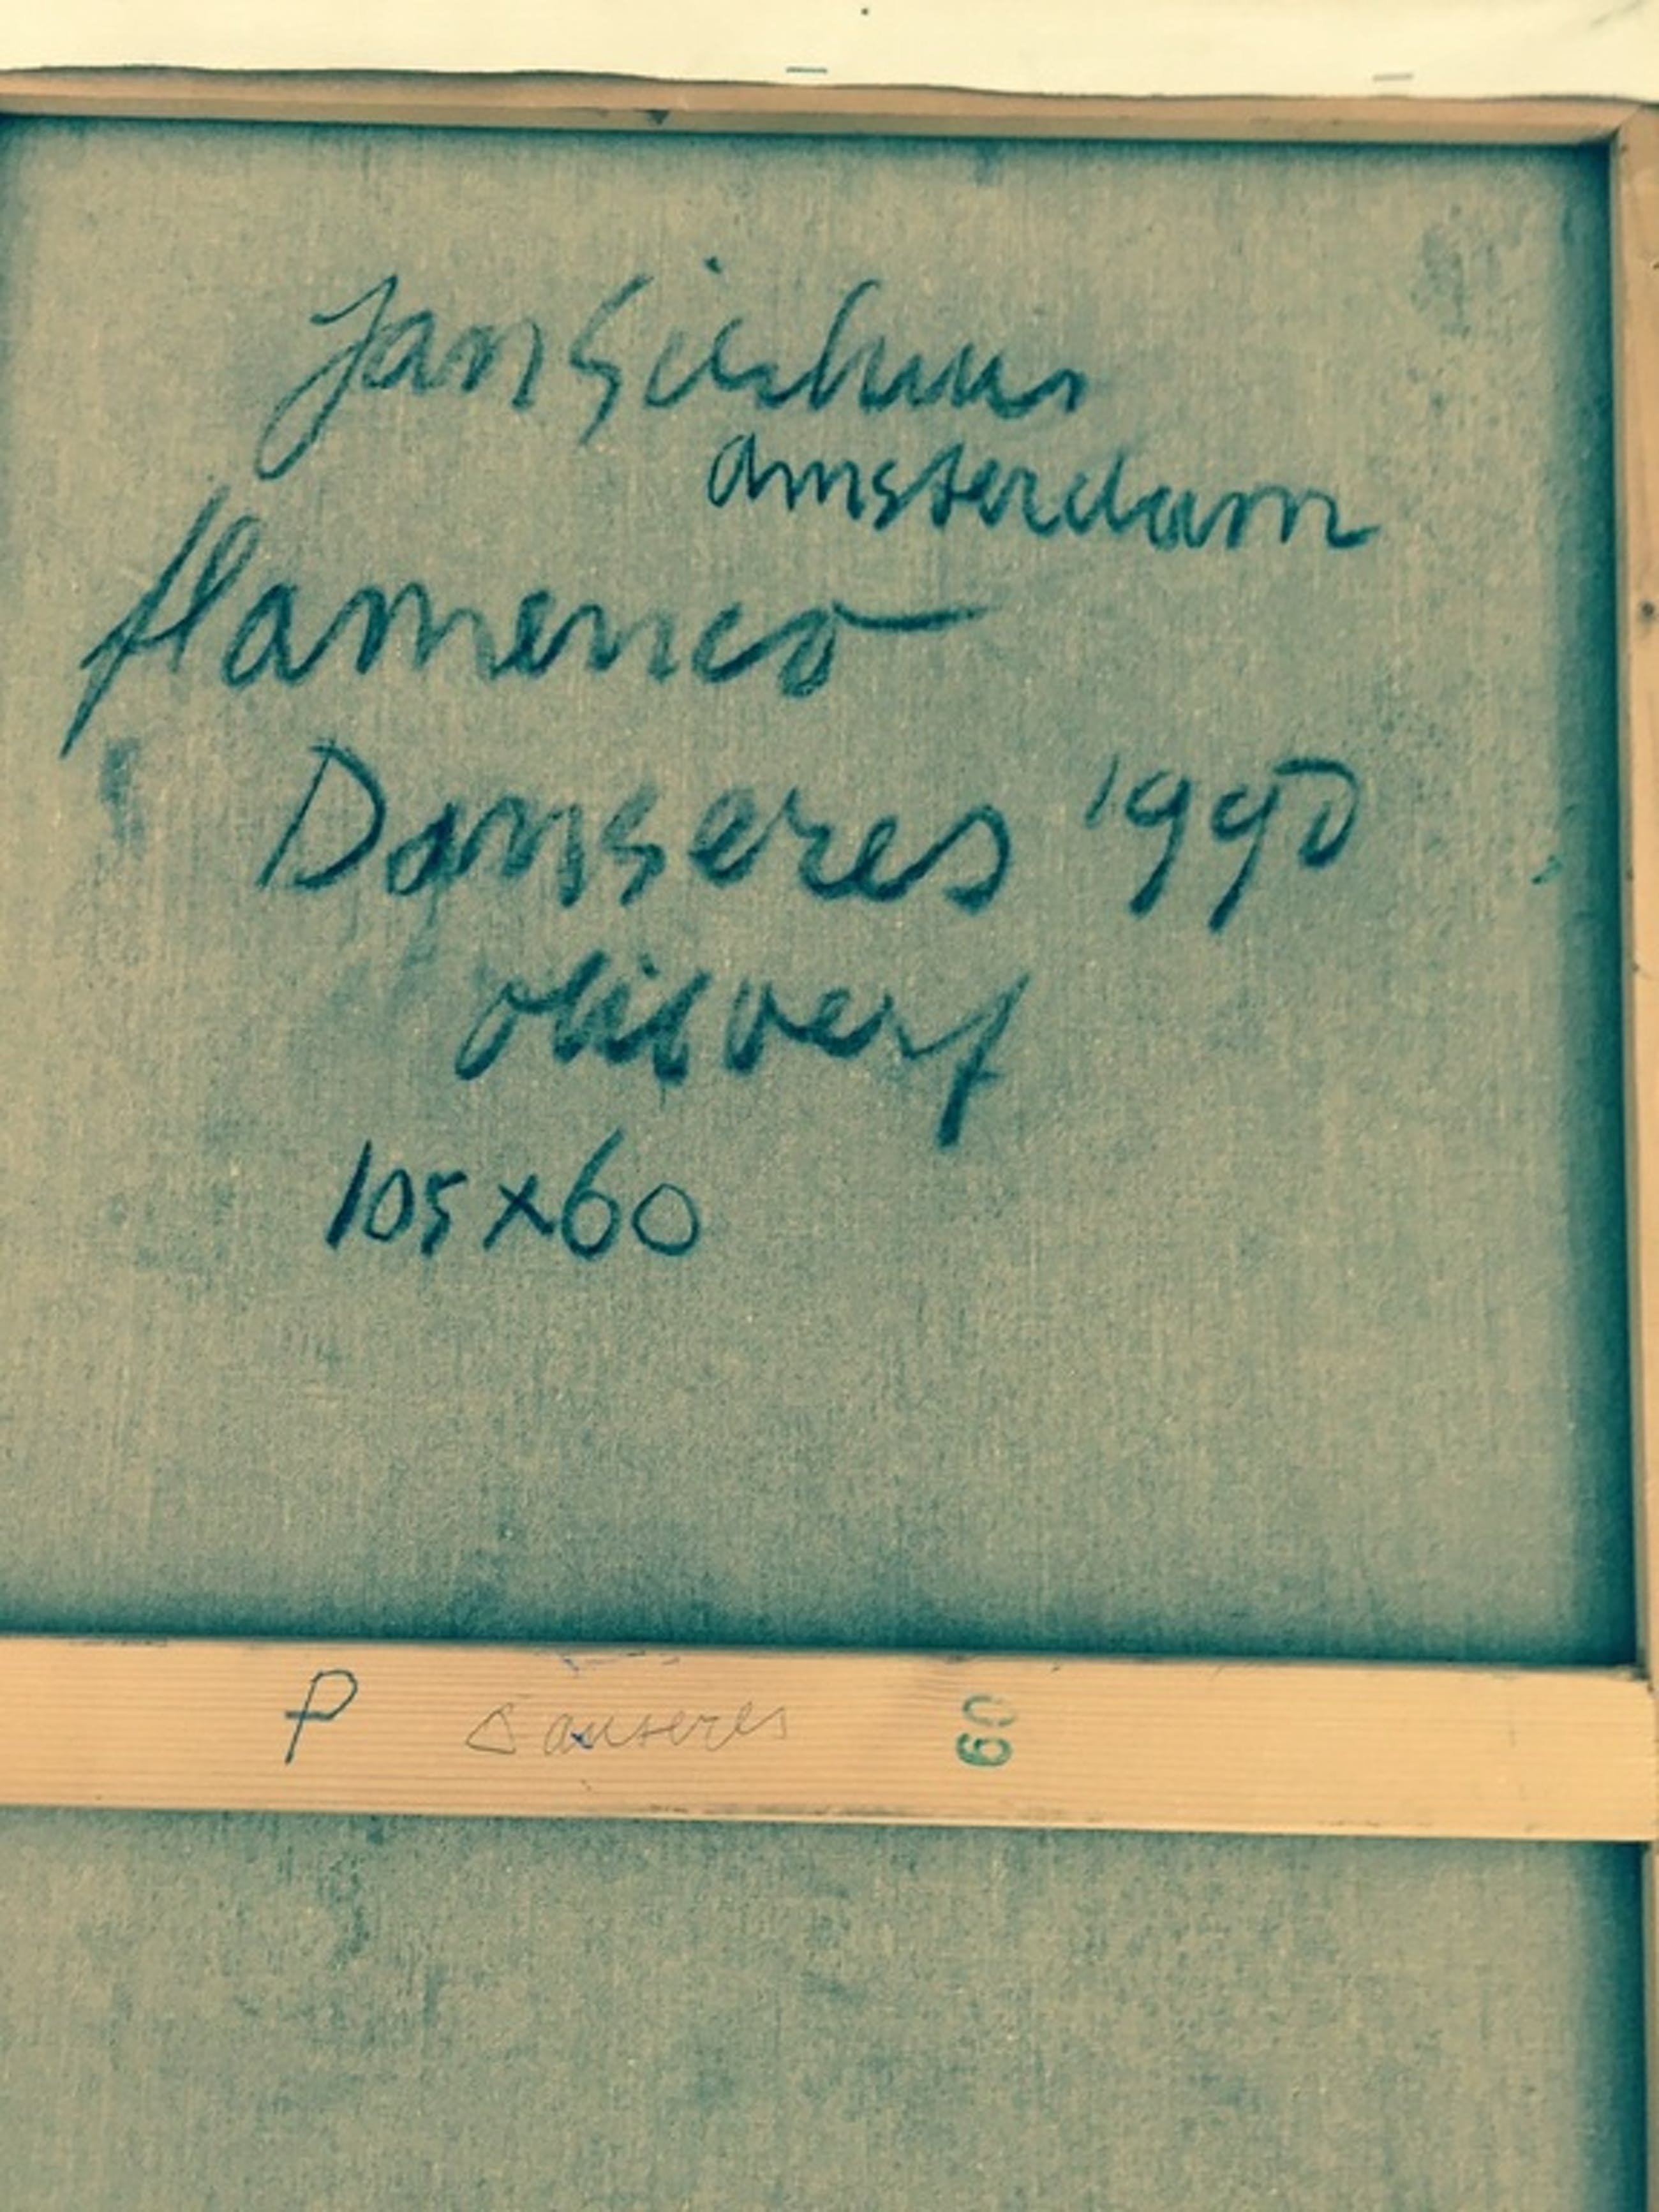 Jan Sierhuis
amsterdam
flamenco
Danseres 1990
olieverf
105x60
P Danseres 60